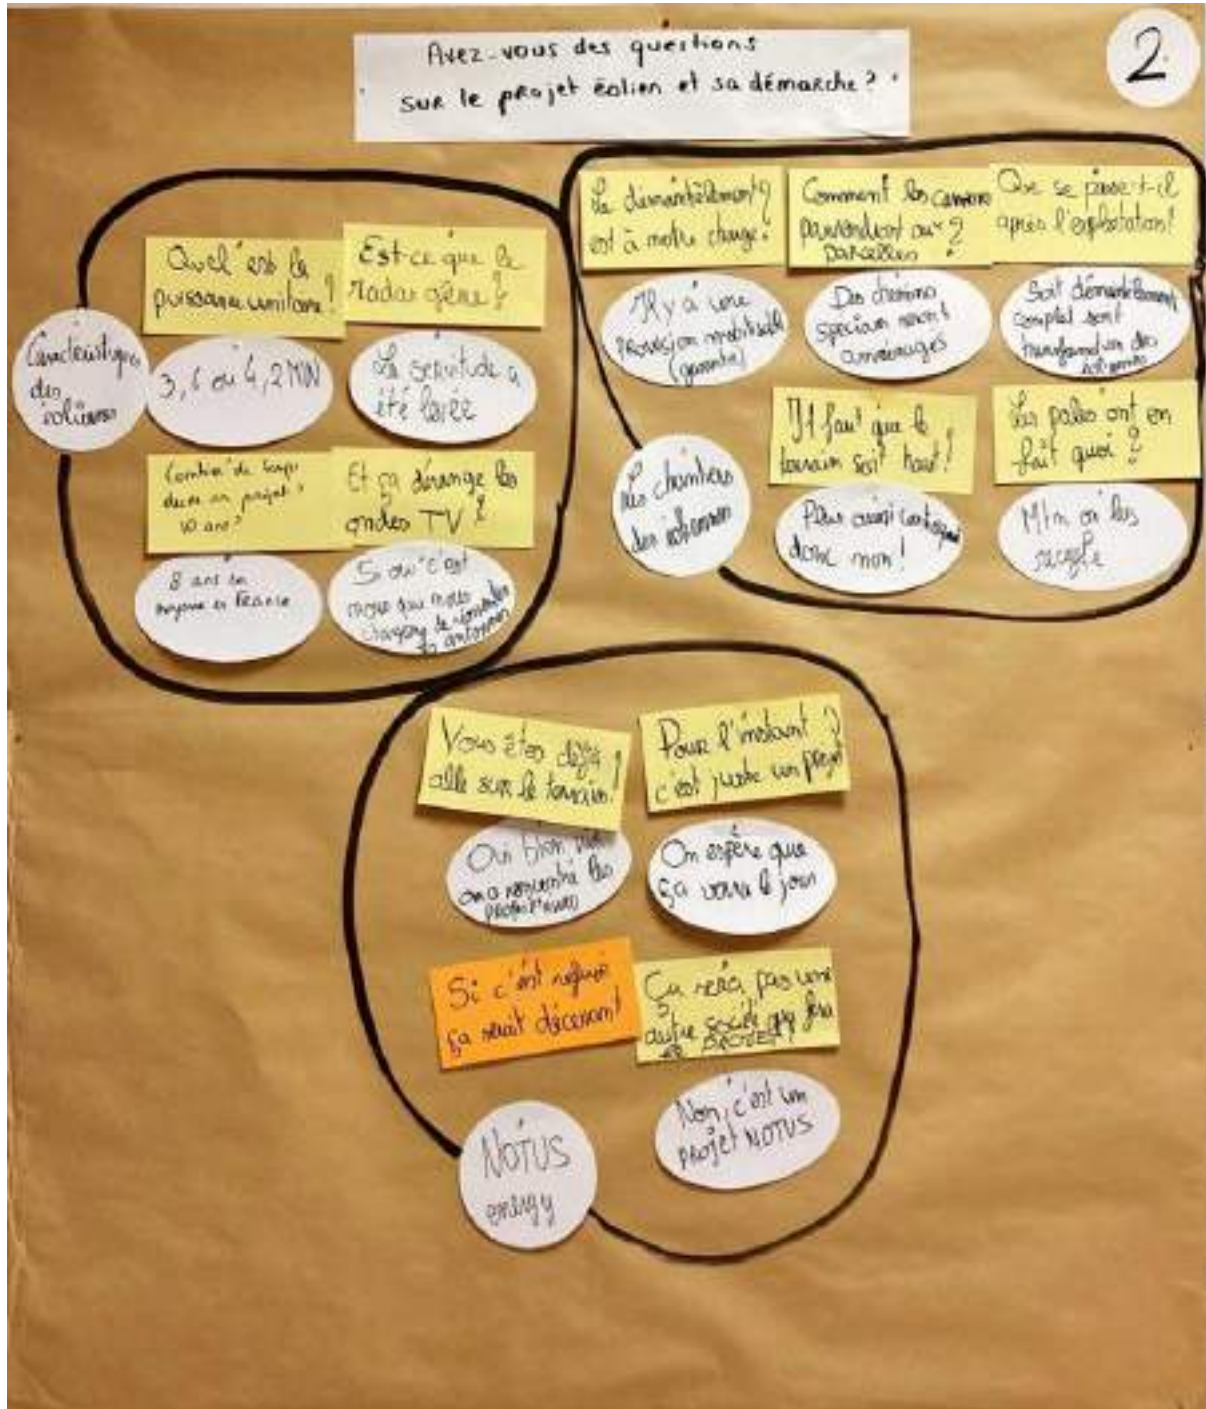 Avez-vous des questions
sur le projet éolien et sa démarche ?
2
Caractéristiques
des
éoliennes
Quel est la
puissance unitaire ?
3,6 ou 4,2 MW
Est-ce que le
radar gêne ?
La servitude a
été levée
Combien de temps
dure un projet ?
10 ans ?
8 ans en
moyenne en France
Et ça dérange les
ondes TV ?
Si oui c'est
nous qui nous
chargeons de
antennes
Les chantiers
des éoliennes
Le démantèlement
est à notre charge ?
Il y a une
provision mobilisable
(garantie)
Comment les camions
parviendront aux ?
parcelles
Des chemins
speciaux seront
aménagés
Que se passe-t-il
après l'exploitation ?
Soit démantèlement
complet soit
des
éoliennes
Il faut que le
terrain soit haut !
donc non !
Les pales ont en
fait quoi ?
Mtn on les
recycle
NOTUS
energy
Vous êtes déjà
allé sur le terrain !
Oui bien
on a rencontré les
propriétaires
Pour l'instant ?
c'est juste un projet
On espère que
ça verra le jour
Si c'est refusé
ça serait décevant
Ça sera pas une
autre société qui fera
ce projet ?
Non, c'est un
projet NOTUS